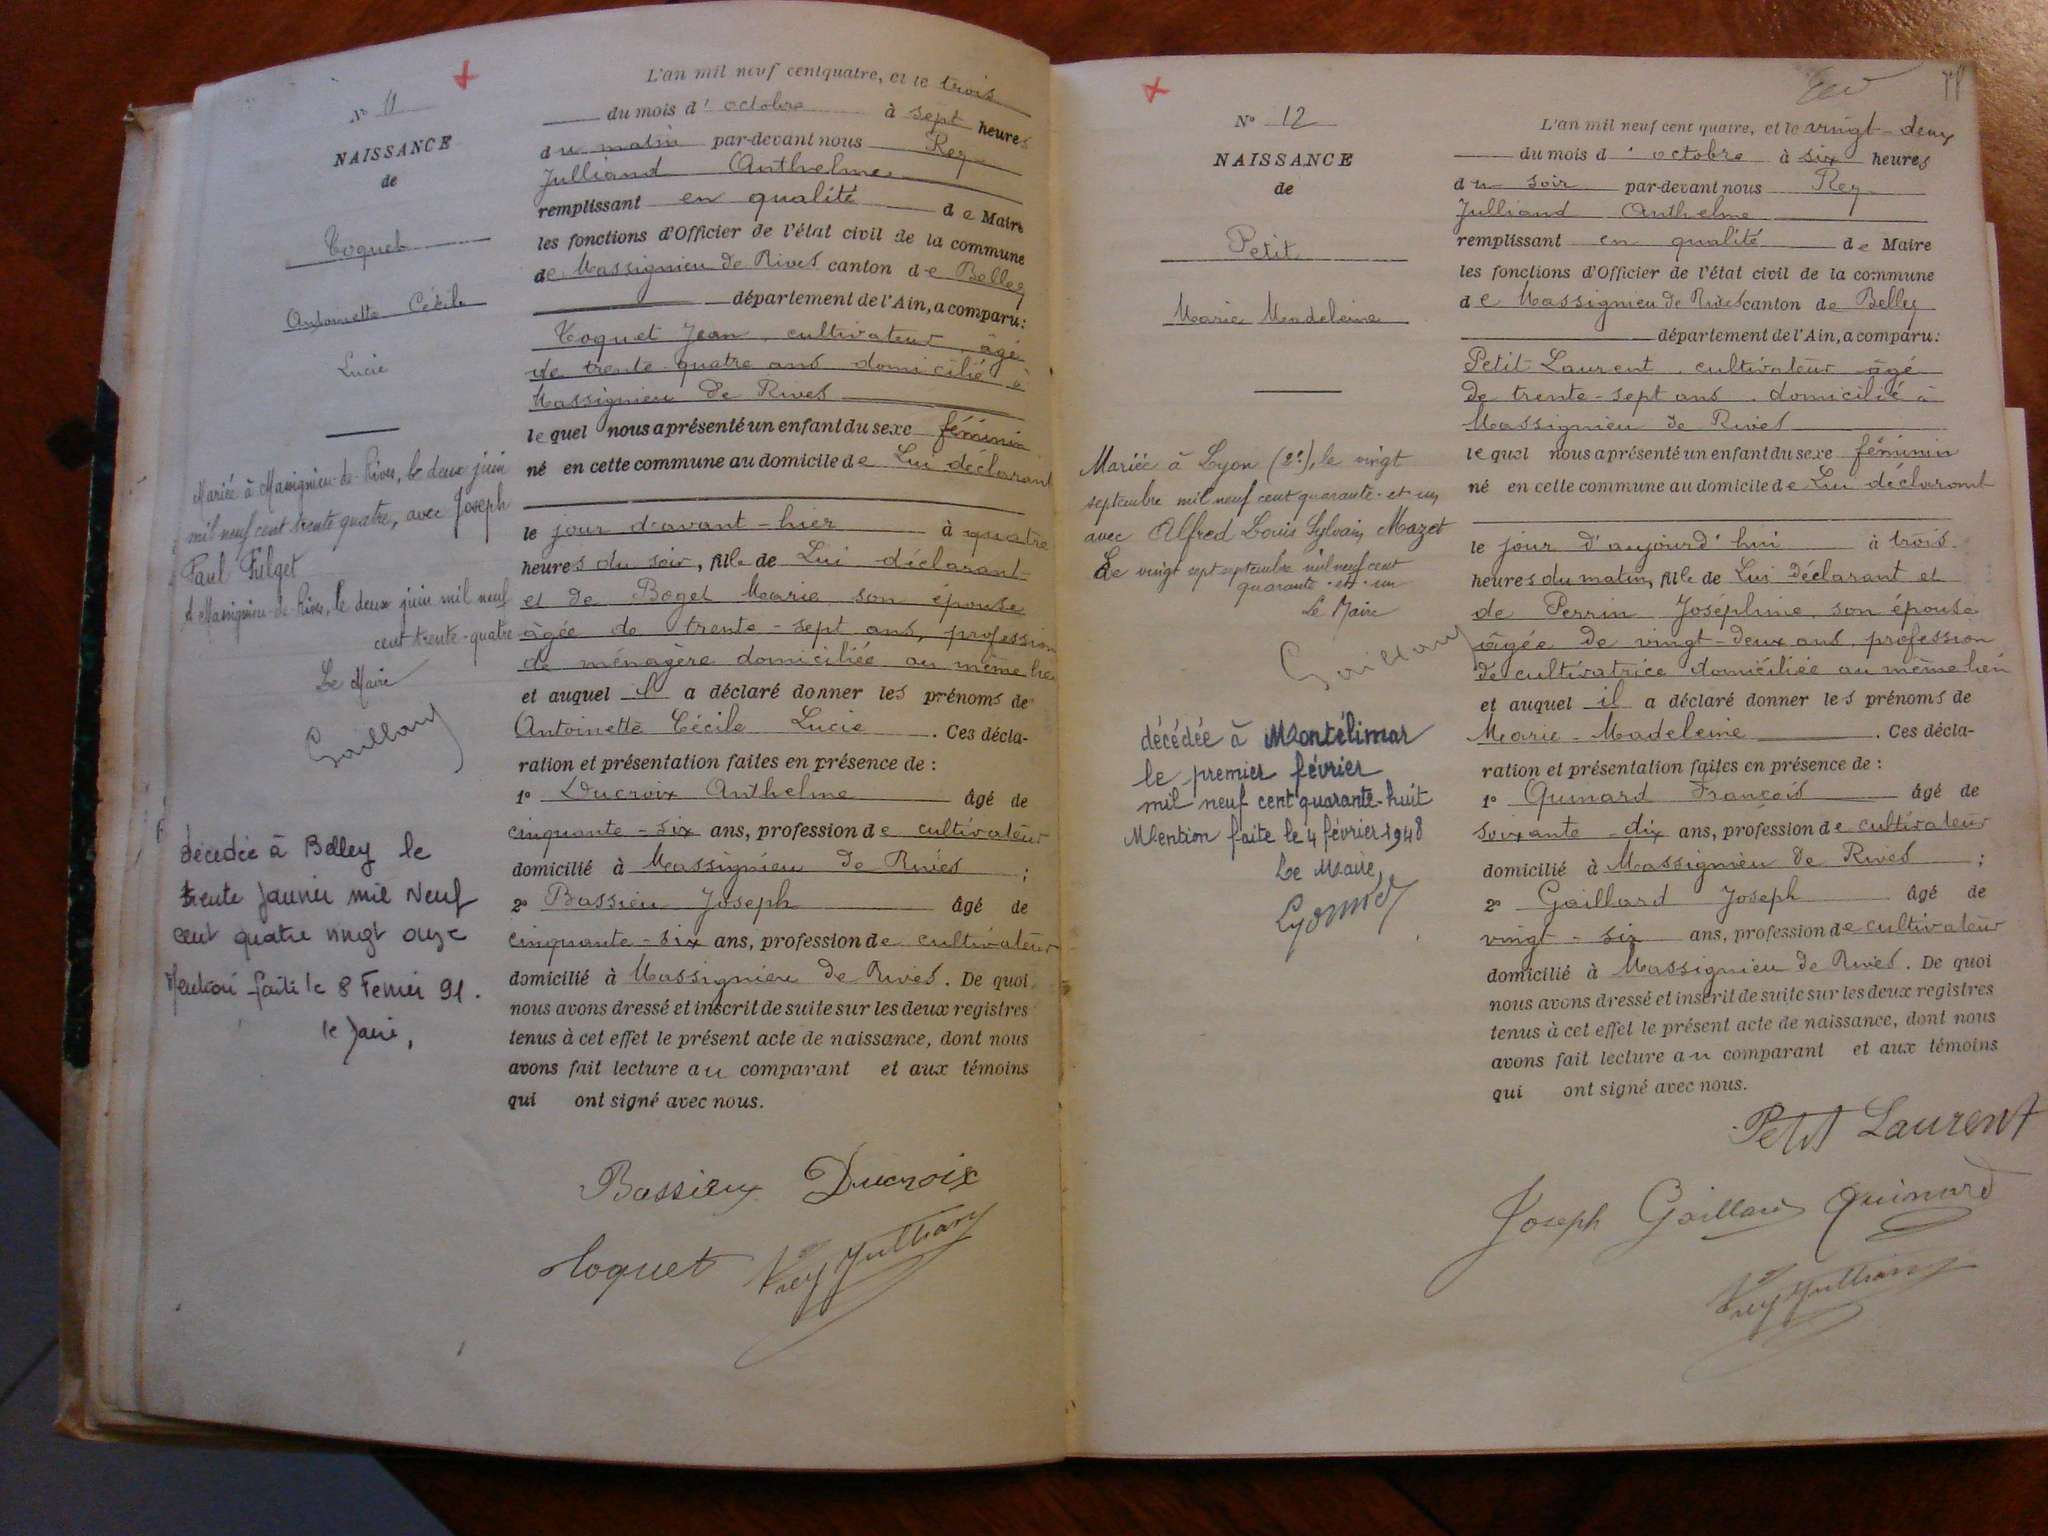 N° 11
NAISSANCE
de
Coquet
Antoinette Cécile
Lucie
Mariée à Massignieu-de-Rives, le deux juin
mil neuf cent trente quatre, avec Joseph
Paul Filget
A Massignieu-de-Rives, le deux juin mil neuf
cent trente-quatre
Le Maire
Gaillard
décédée à Belley le
trente Janvier mil Neuf
cent quatre vingt onze
Mention faite le 8 Fevrier 91.
le Maire,
L'an mil neuf cent quatre, et le trois
du mois d'octobre à sept heures
du matin par-devant nous Rey
Julliand Anthelme
remplissant en qualité de Maire
les fonctions d'Officier de l'état civil de la commune
de Massignieu de Rives canton de Belley
département de l'Ain, a comparu:
Coquet Jean, cultivateur, âgé
de trente-quatre ans domicilié à
Massignieu de Rives
lequel nous a présenté un enfant du sexe féminin
né en cette commune au domicile de Lui déclarant
le jour d'avant-hier à quatre
heures du soir, fille de Lui déclarant
et de Boget Marie son épouse
âgée de trente-sept ans, profession
de ménagère domiciliée au même lieu
et auquel il a déclaré donner les prénoms de
Antoinette Cécile Lucie. Ces décla-
ration et présentation faites en présence de:
1° Ducroix Anthelme âgé de
cinquante-six ans, profession de cultivateur
domicilié à Massignieu de Rives;
2° Bassieu Joseph âgé de
cinquante-six ans, profession de cultivateur
domicilié à Massignieu de Rives. De quoi
nous avons dressé et inscrit de suite sur les deux registres
tenus à cet effet le présent acte de naissance, dont nous
avons fait lecture au comparant et aux témoins
qui ont signé avec nous.
Bassieux Ducroix
Coquet Rey Julliand
N° 12
NAISSANCE
de
Petit
Marie Madeleine
Mariée à Lyon (2e), le vingt
septembre mil neuf cent quarante-et-un
avec Alfred Louis Sylvain Mazet
Le vingt sept septembre mil neuf cent
quarante-et-un
Le Maire
Gaillard
décédée à Montélimar
le premier février
mil neuf cent quarante-huit
Mention faite le 4 février 1948
Le Maire,
L'an mil neuf cent quatre, et le vingt-deux
du mois d'octobre à six heures
du soir par-devant nous Rey
Julliand Anthelme
remplissant en qualité de Maire
les fonctions d'Officier de l'état civil de la commune
de Massignieu de Rives canton de Belley
département de l'Ain, a comparu:
Petit Laurent, cultivateur âgé
de trente-sept ans, domicilié à
Massignieu de Rives
lequel nous a présenté un enfant du sexe féminin
né en cette commune au domicile de Lui déclarant
le jour d'aujourd'hui à trois
heures du matin, fille de Lui Déclarant et
de Perrin Joséphine son épouse
âgée de vingt-deux ans, profession
de cultivatrice domiciliée au même lieu
et auquel il a déclaré donner les prénoms de
Marie-Madeleine. Ces décla-
ration et présentation faites en présence de:
1° Quinard François âgé de
soixante-dix ans, profession de cultivateur
domicilié à Massignieu de Rives;
2° Gaillard Joseph âgé de
vingt-six ans, profession de cultivateur
domicilié à Massignieu de Rives. De quoi
nous avons dressé et inscrit de suite sur les deux registres
tenus à cet effet le présent acte de naissance, dont nous
avons fait lecture au comparant et aux témoins
qui ont signé avec nous.
Petit Laurent
Joseph Gaillard Quinard
Rey Julliand